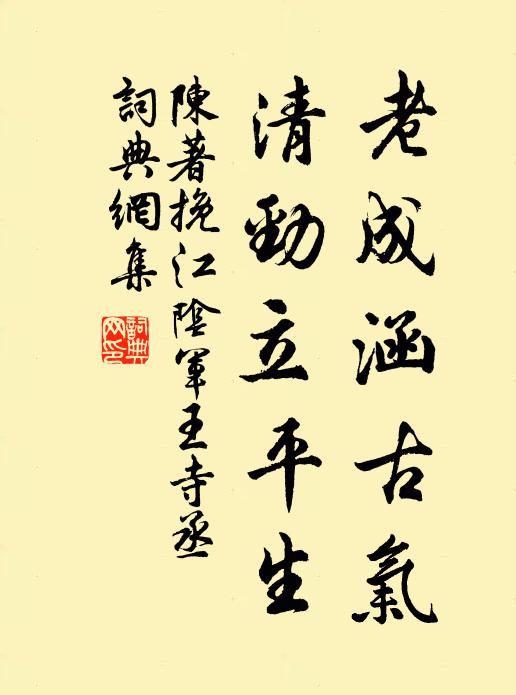 老成涵古氣
清勁立平生
陳著挽江陰軍王寺丞
詞典網集
詞典網印